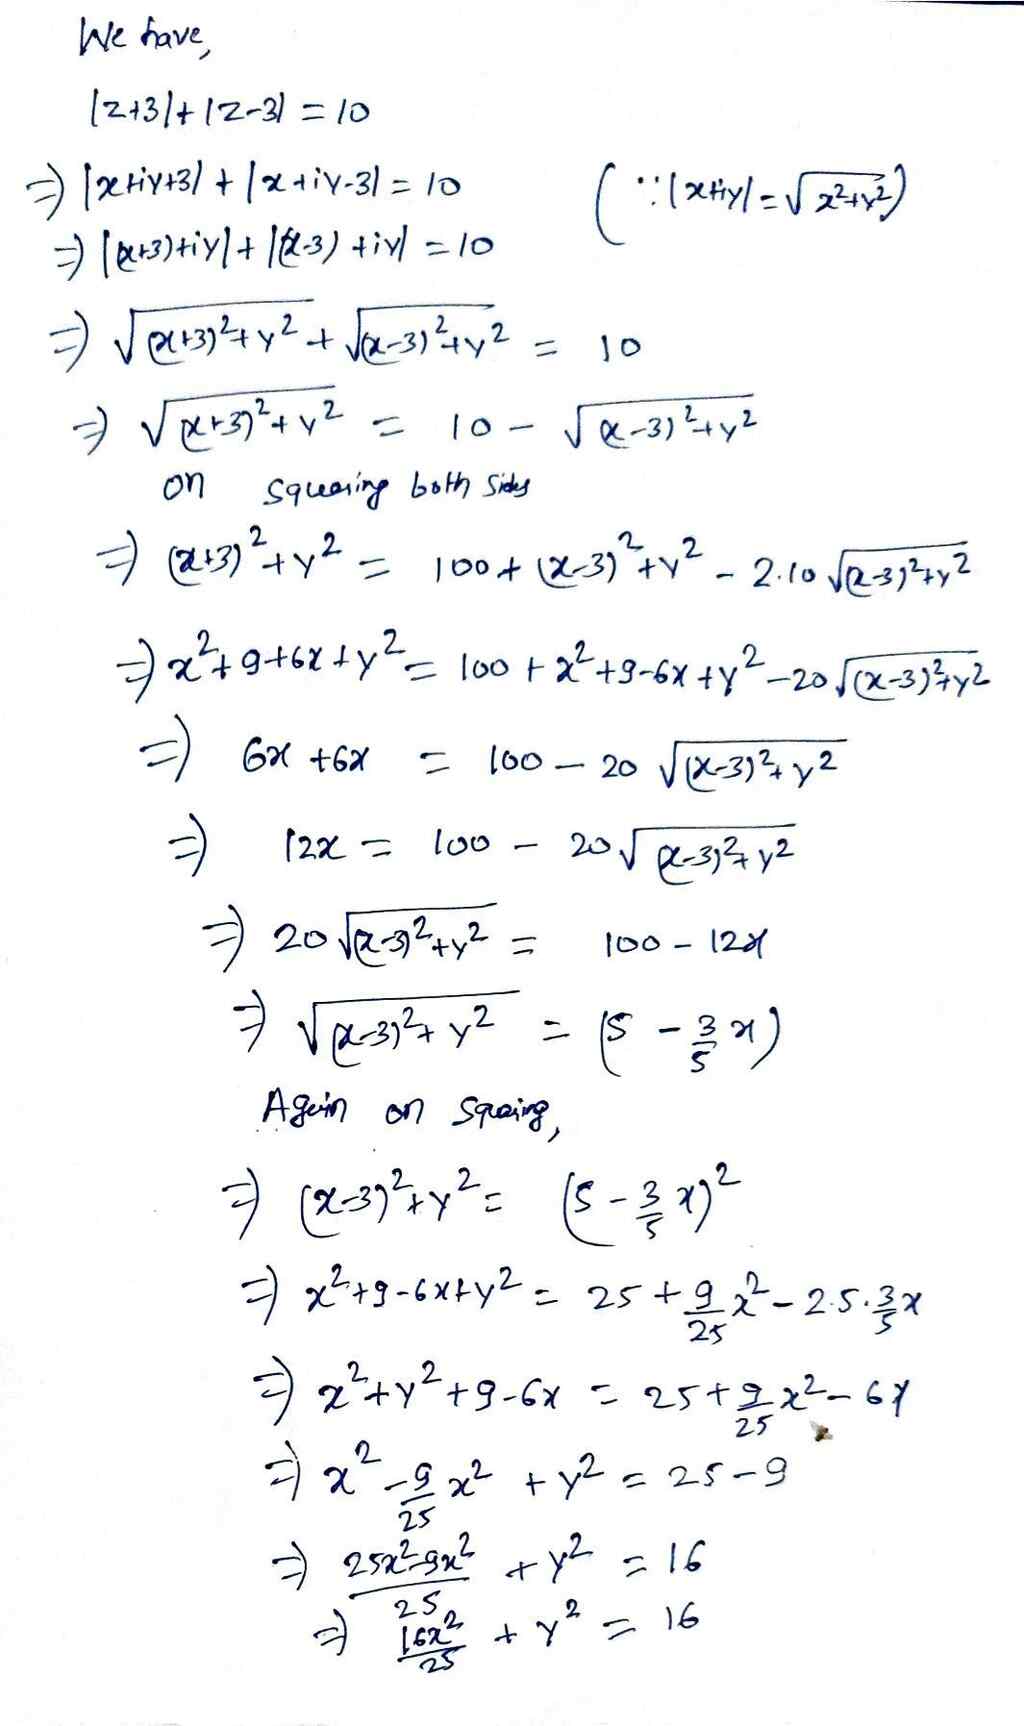 We have,
|z+3|+|z-3| = 10
⇒ |x+iy+3| + |x+iy-3| = 10 (∵ |x+iy| = √(x²+y²))
⇒ |(x+3)+iy| + |(x-3)+iy| = 10
⇒ √((x+3)²+y²) + √((x-3)²+y²) = 10
⇒ √((x+3)²+y²) = 10 - √((x-3)²+y²)
on squaring both sides
⇒ (x+3)²+y² = 100 + (x-3)²+y² - 2.10 √((x-3)²+y²)
⇒ x²+9+6x+y² = 100 + x²+9-6x+y² - 20 √((x-3)²+y²)
⇒ 6x + 6x = 100 - 20 √((x-3)²+y²)
⇒ 12x = 100 - 20 √((x-3)²+y²)
⇒ 20 √((x-3)²+y²) = 100 - 12x
⇒ √((x-3)²+y²) = (5 - 3/5 x)
Again on sqaring,
⇒ (x-3)²+y² = (5 - 3/5 x)²
⇒ x²+9-6x+y² = 25 + 9/25 x² - 2.5.3/5 x
⇒ x²+y²+9-6x = 25 + 9/25 x² - 6x
⇒ x² - 9/25 x² + y² = 25-9
⇒ (25x²-9x²)/25 + y² = 16
⇒ 16x²/25 + y² = 16